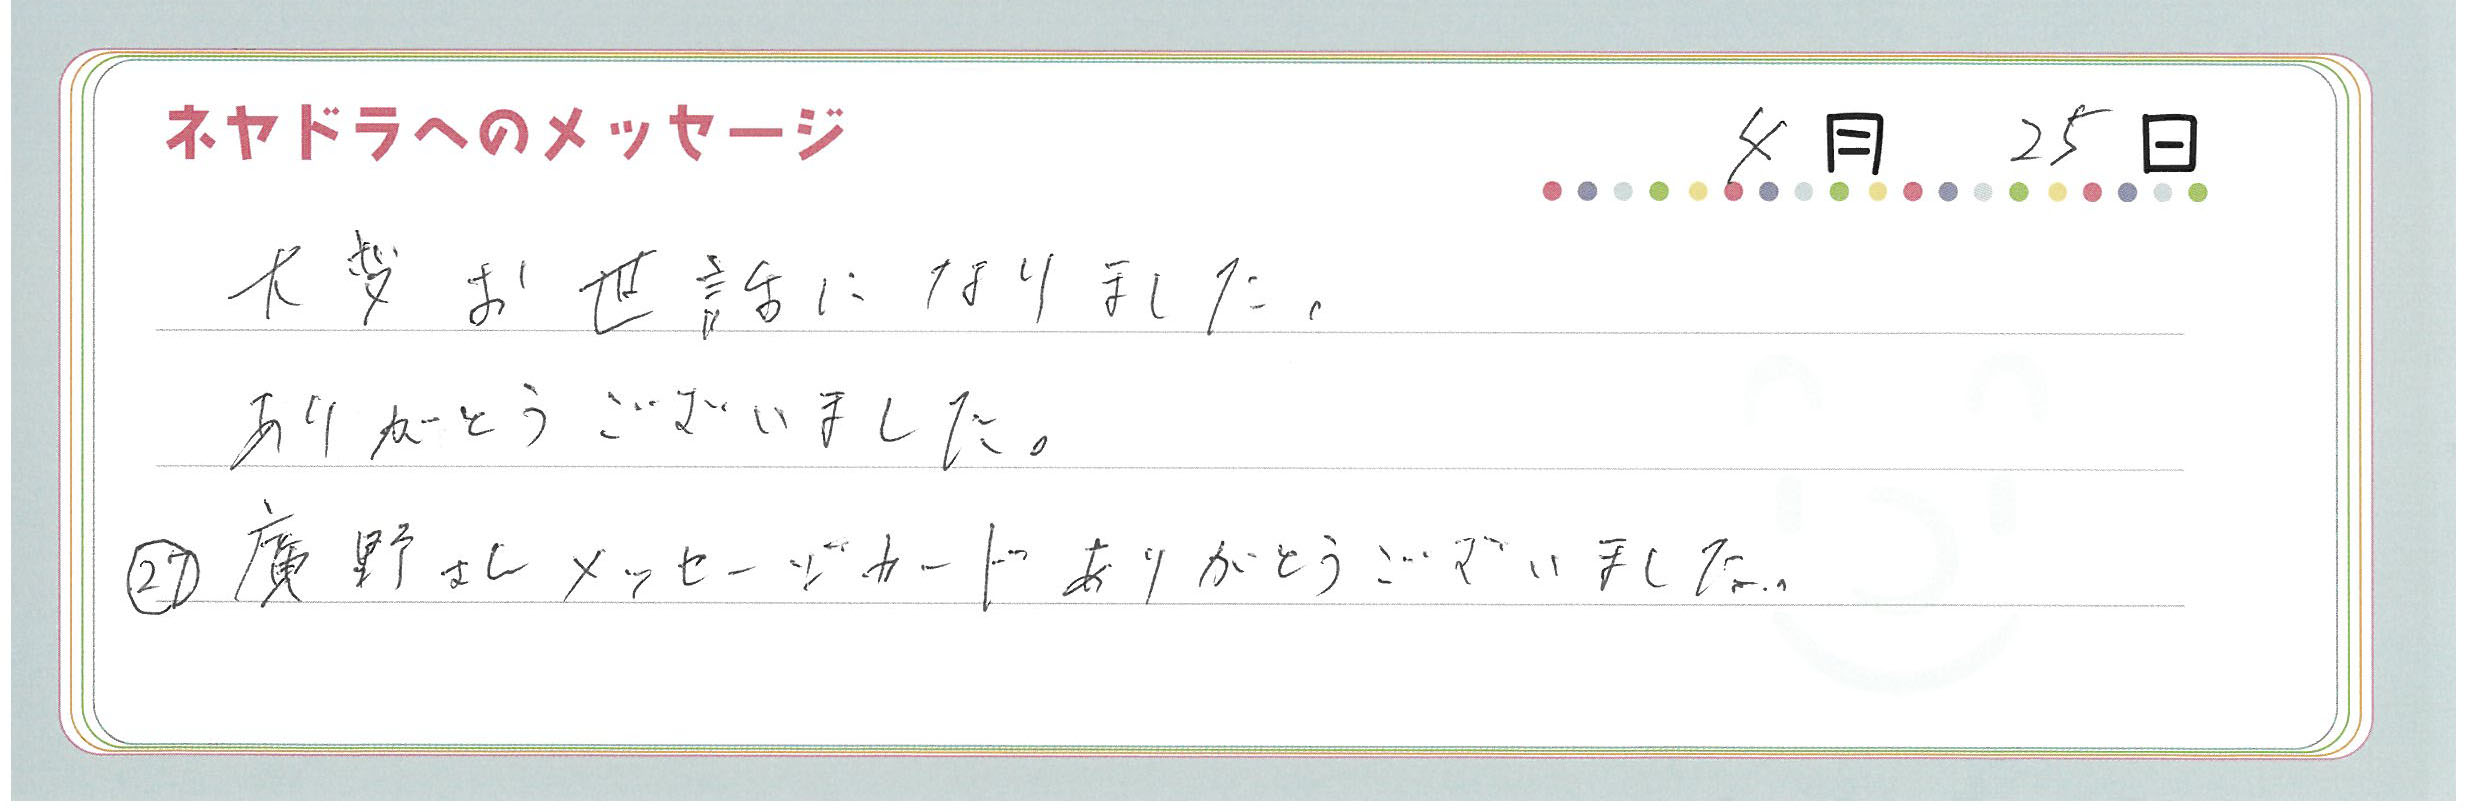 ネヤドラへのメッセージ
4月 25日
大変お世話になりました。
ありがとうございました。
㉗ 廣野さんメッセージカードありがとうございました。